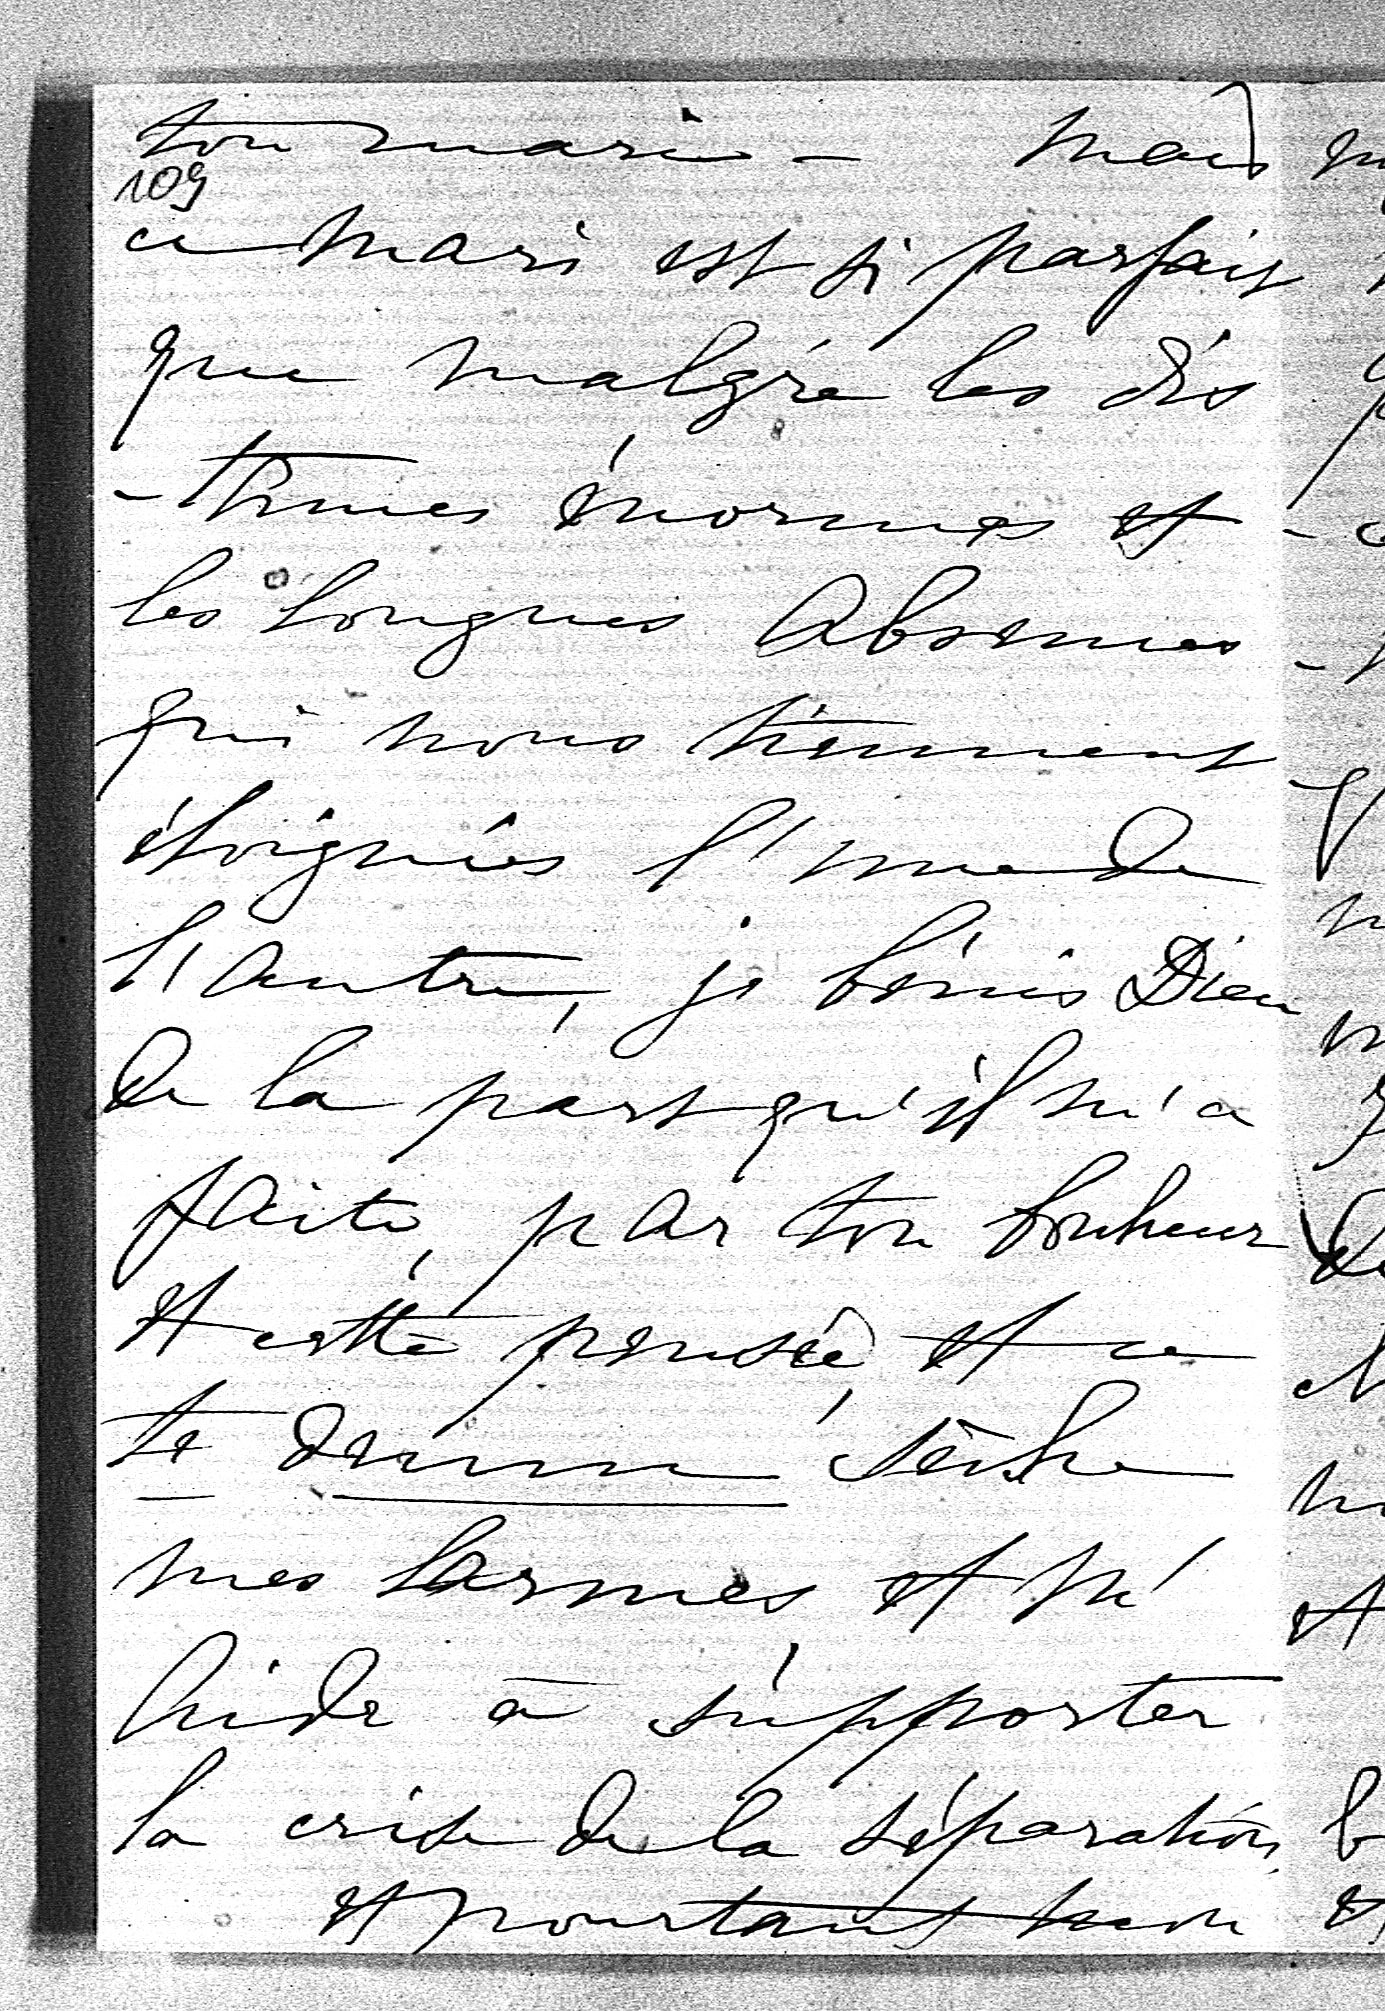 ton mari - Mais
109
ce mari est si parfait
que malgré les dis
-tances énormes et
les longues absences
qui nous tiennent
éloignés l'un de
l'autre, je bénis Dieu
de la part qu'il m'a
faite, par ton bonheur
et cette pensée, et ce
te donner sèche
mes larmes et m'
aide à supporter
la crise de la séparation,
et pourtant mon